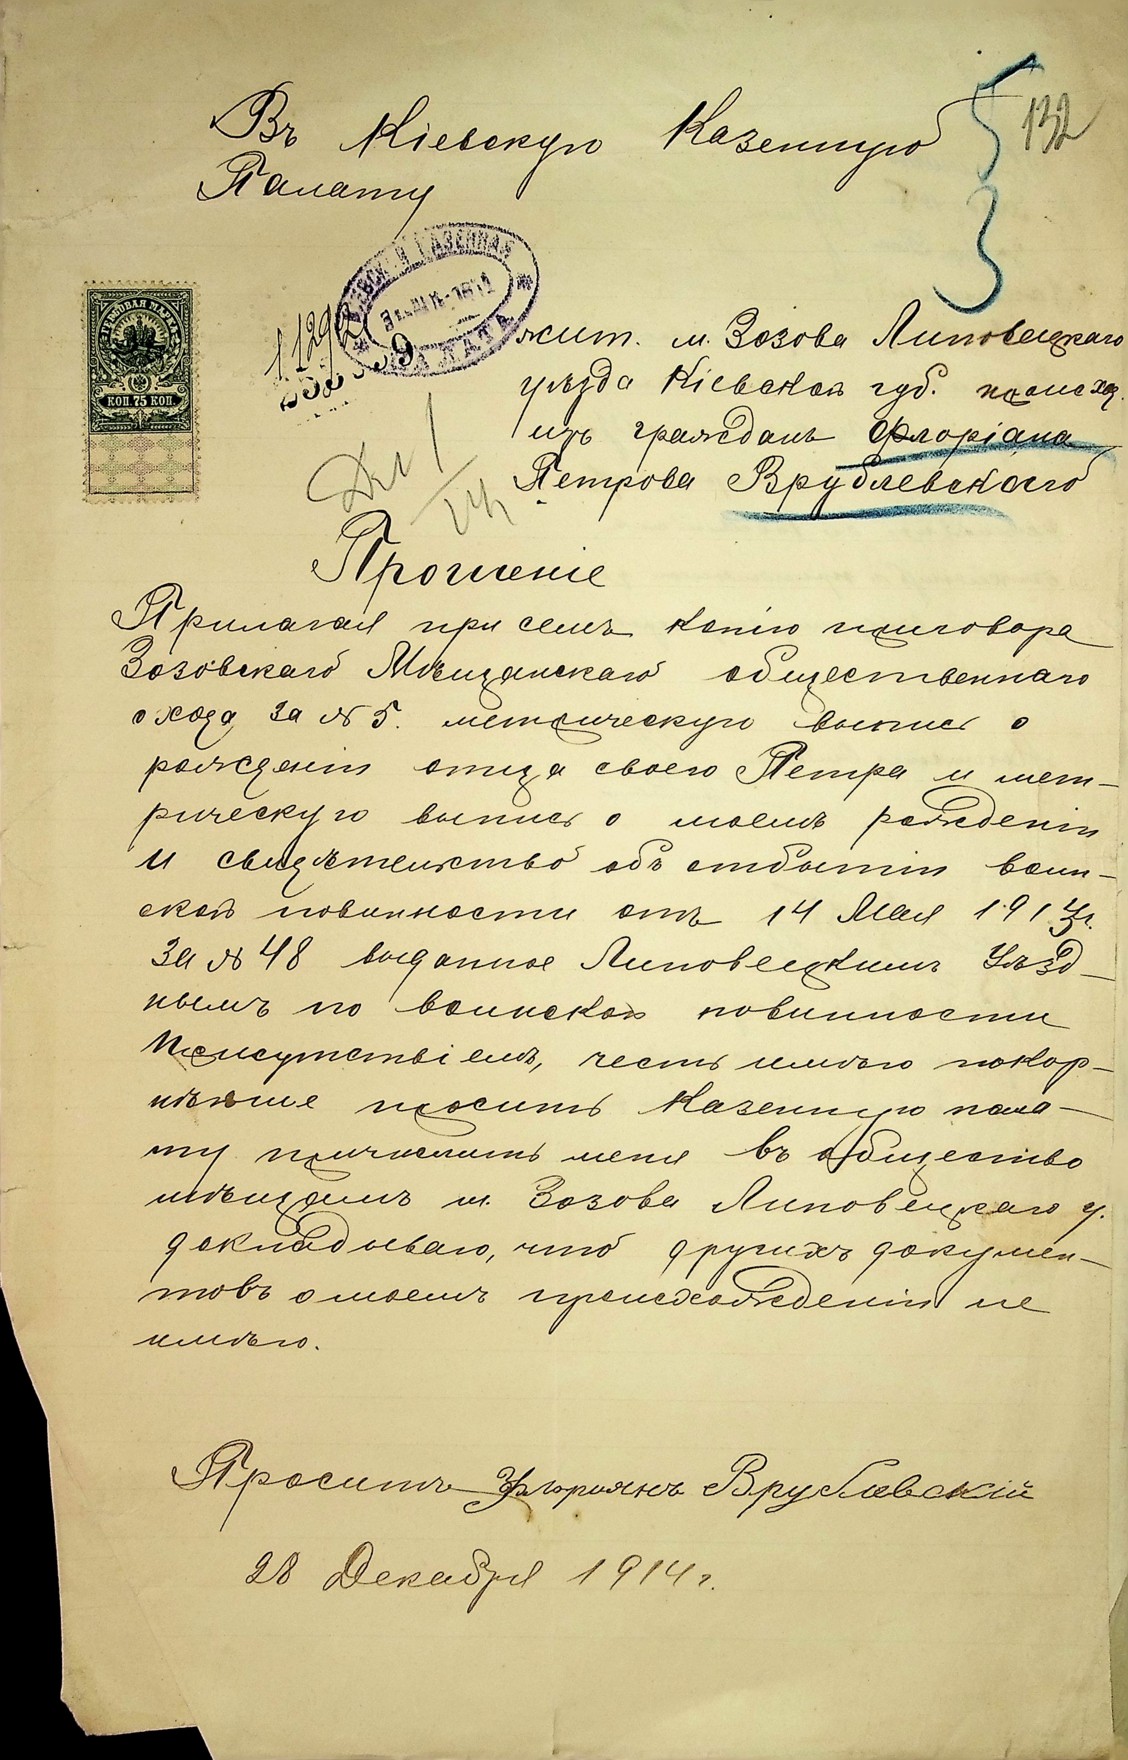 132
Въ Кіевскую Казенную
Палату
КІЕВСКАЯ КАЗЕННАЯ
ПАЛАТА
ГЕРБОВАЯ МАРКА
КОП. 75 КОП.
11292
жит. м. Зозова Липовецкаго
уѣзда Кіевской губ. происход.
изъ гражданъ Флоріана
Петрова Врублевскаго
Прошеніе
Прилагая при семъ копію приговора
Зозовскаго Мѣщанскаго общественнаго
схода за № 5. метрическую выпись о
рожденіи отца своего Петра и мет-
рическую выпись о моемъ рожденіи
и свидѣтельство объ отбытіи воин-
ской повинности отъ 14 Мая 191 г.
за № 48 выданное Липовецкимъ Уѣзд-
нымъ по воинской повинности
Присутствіемъ, честь имѣю покор-
нѣйше просить Казенную пала-
ту причислить меня въ общество
мѣщанъ м. Зозова Липовецкаго у.
докладываю, что другихъ докумен-
товъ о моемъ происхожденіи не
имѣю.
Проситъ Флориянъ Врублевскій
28 Декабря 1914 г.